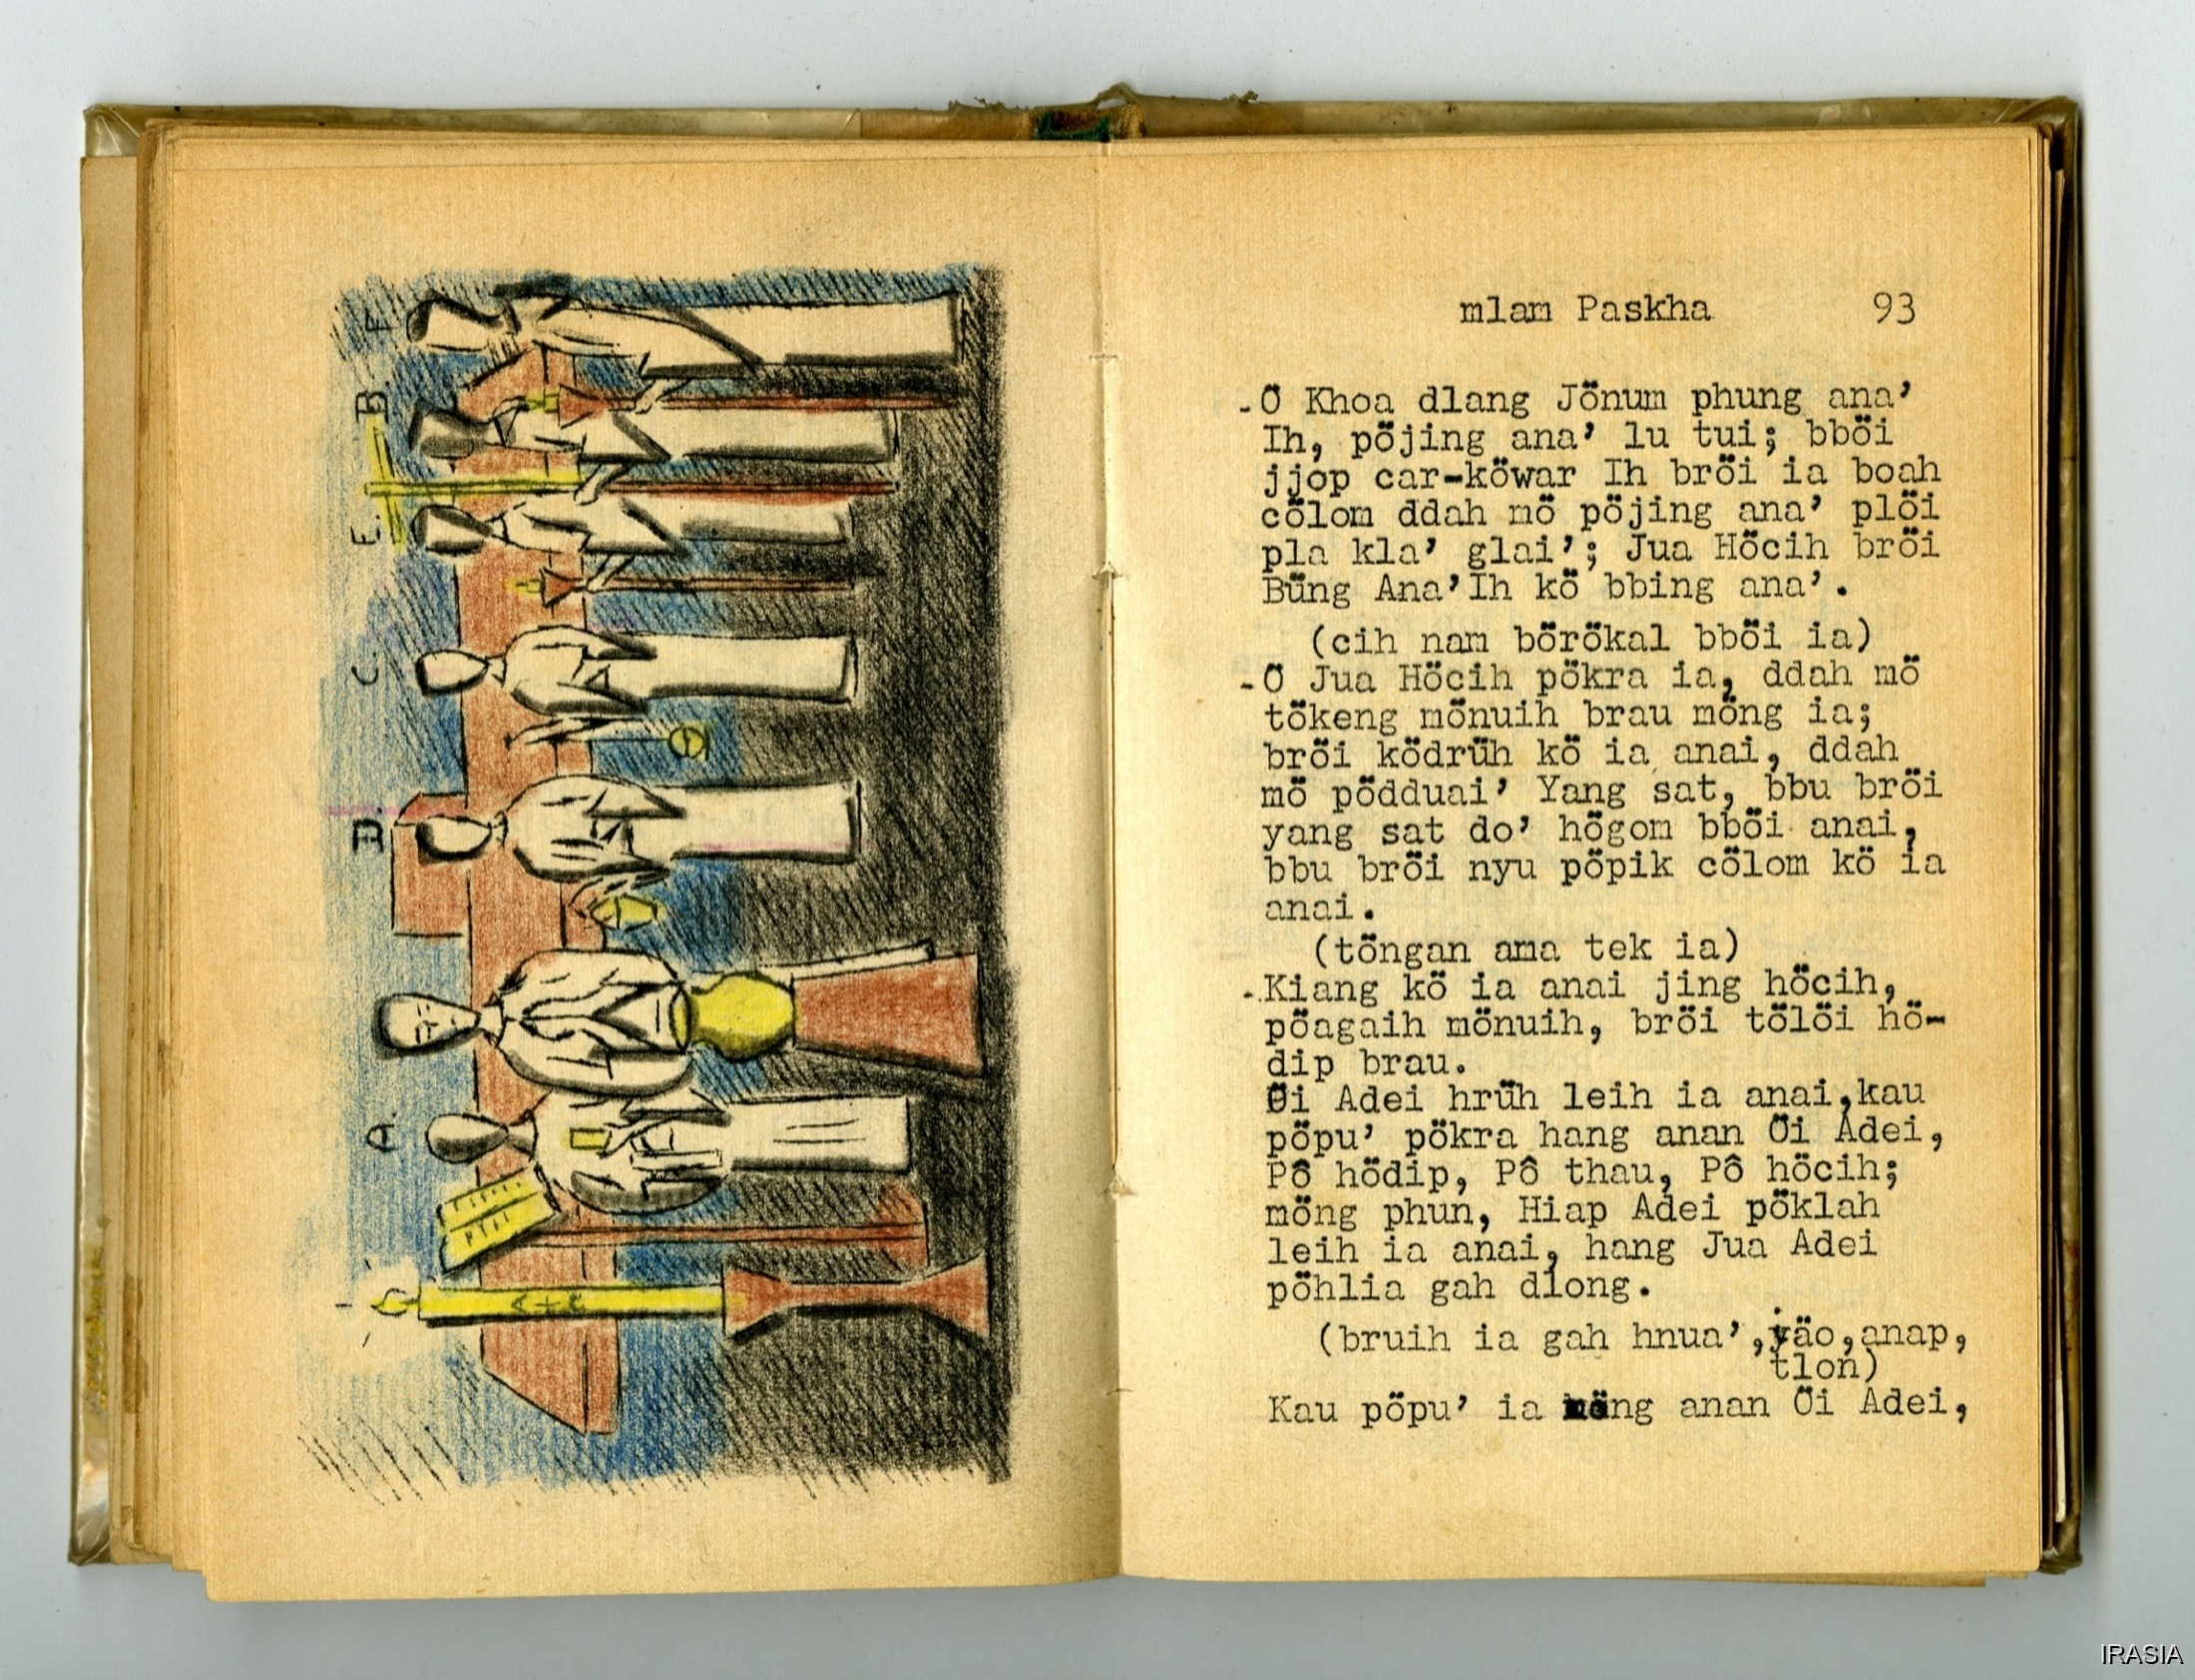 F.
B.
E.
C.
D.
A.
A + Ω
mlam Paskha 93
-Ö Khoa dlang Jönum phung ana’
Ih, pöjing ana’ lu tui; bböi
jjop car-köwar Ih bröi ia boah
cölom ddah mö pöjing ana’ plöi
pla kla’ glai’; Jua Höcih bröi
Büng Ana’Ih kö bbing ana’.
(cih nam börökal bböi ia)
-Ö Jua Höcih pökra ia, ddah mö
tökeng mönuih brau möng ia;
bröi ködrüh kö ia anai, ddah
mö pödduai’ Yang sat, bbu bröi
yang sat do’ högom bböi anai,
bbu bröi nyu pöpik cölom kö ia
anai.
(töngan ama tek ia)
-Kiang kö ia anai jing höcih,
pöagaih mönuih, bröi tölöi hö-
dip brau.
Öi Adei hrüh leih ia anai,kau
pöpu’ pökra hang anan Öi Adei,
Pô hödip, Pô thau, Pô höcih;
möng phun, Hiap Adei pöklah
leih ia anai, hang Jua Adei
pöhlia gah dlong.
(bruih ia gah hnua’,yäo,anap,
tlon)
Kau pöpu’ ia möng anan Öi Adei,
IRASIA